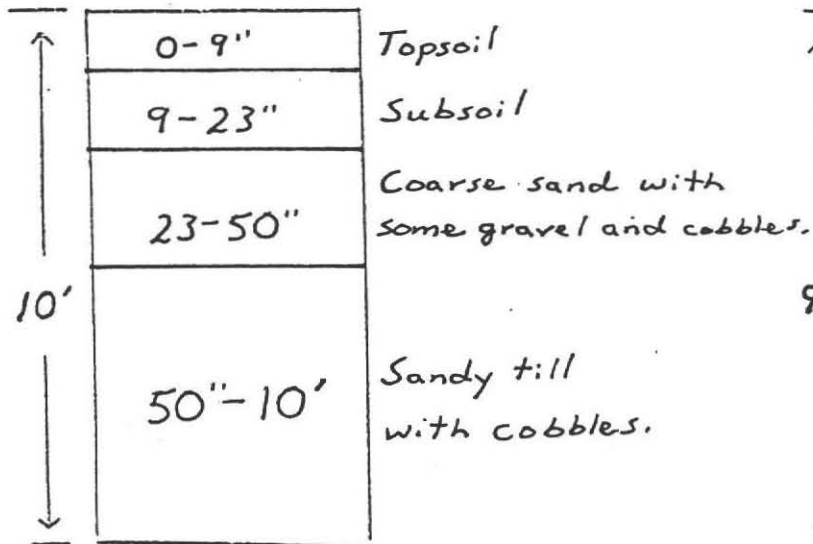 0-9" Topsoil
9-23" Subsoil
Coarse sand with
23-50" some gravel and cobbles.
10'
50"-10' Sandy till
with cobbles.